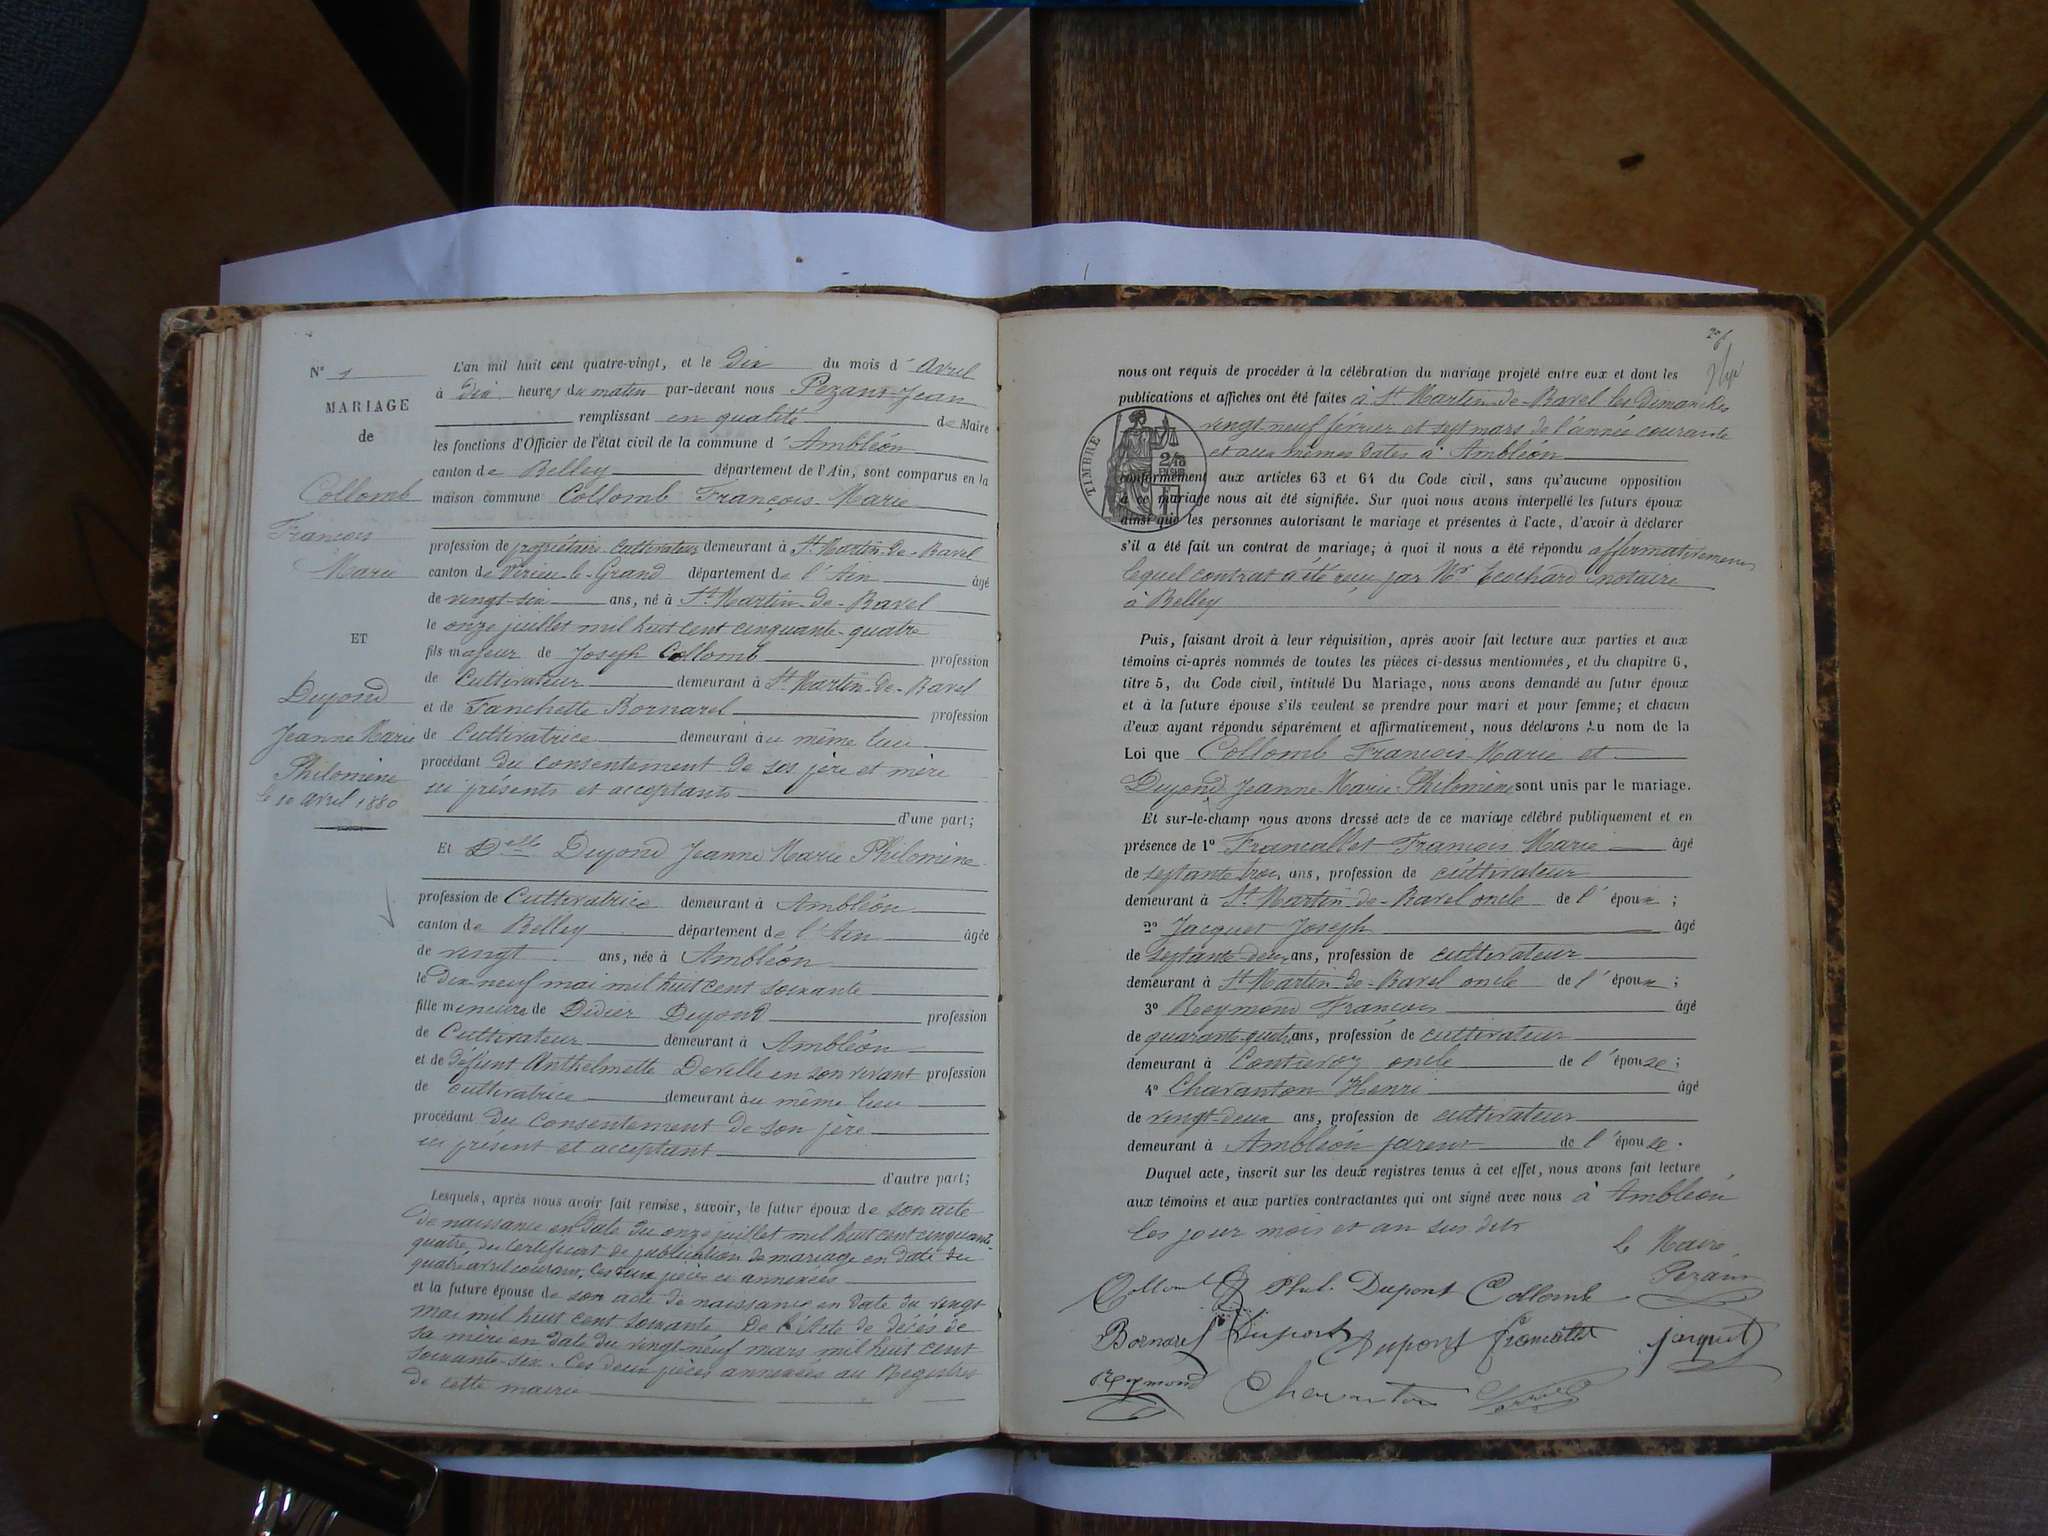 N° 1
MARIAGE
de
Collomb
François
Marie
ET
Dupond
Jeanne Marie
Philomène
le 10 avril 1880
L'an mil huit cent quatre-vingt, et le Dix du mois d' Avril
à Dix heures du matin par-devant nous Pezant Jean
remplissant en qualité de Maire
les fonctions d'Officier de l'état civil de la commune d' Ambléon
canton de Belley département de l'Ain, sont comparus en la
maison commune Collomb François-Marie
profession de propriétaire Cultivateur demeurant à St Martin-de-Bavel
canton de Virieu-le-Grand département de l'Ain âgé
de vingt-six ans, né à St Martin-de-Bavel
le onze juillet mil huit cent cinquante-quatre
fils majeur de Joseph Collomb profession
de Cultivateur demeurant à St Martin-de-Bavel
et de Fanchette Bornarel profession
de Cultivatrice demeurant au même lieu
procédant du consentement de ses père et mère
ici présents et acceptants
d'une part;
Et Delle Dupond Jeanne Marie Philomène
profession de Cultivatrice demeurant à Ambléon
canton de Belley département de l'Ain âgée
de vingt ans, née à Ambléon
le dix-neuf mai mil huit cent soixante
fille mineure de Didier Dupond profession
de Cultivateur demeurant à Ambléon
et de défunt Anthelmette Develle en son vivant profession
de cultivatrice demeurant au même lieu
procédant du consentement de son père
ici présent et acceptant
d'autre part;
Lesquels, après nous avoir fait remise, savoir, le futur époux de son acte
de naissance en date du onze juillet mil huit cent cinquante
quatre, du Certificat de publication de mariage en date du
quatre avril courant, Ces deux pièces ci annexées
et la future épouse de son acte de naissance en date du vingt
mai mil huit cent soixante De l'Acte de décès de
sa mère en date du vingt-neuf mars mil huit cent
soixante-six. Ces deux pièces annexées au Registre
de cette mairie
nous ont requis de procéder à la célébration du mariage projeté entre eux et dont les
publications et affiches ont été faites à St Martin-de-Bavel les Dimanches
vingt-neuf février et sept mars de l'année courante
et aux mêmes dates à Ambléon
TIMBRE
conformément aux articles 63 et 64 du Code civil, sans qu'aucune opposition
à ce mariage nous ait été signifiée. Sur quoi nous avons interpellé les futurs époux
ainsi que les personnes autorisant le mariage et présentes à l'acte, d'avoir à déclarer
s'il a été fait un contrat de mariage; à quoi il nous a été répondu affirmativement
lequel contrat a été reçu par Mr Ecochard notaire
à Belley
Puis, faisant droit à leur réquisition, après avoir fait lecture aux parties et aux
témoins ci-après nommés de toutes les pièces ci-dessus mentionnées, et du chapitre 6,
titre 5, du Code civil, intitulé Du Mariage, nous avons demandé au futur époux
et à la future épouse s'ils veulent se prendre pour mari et pour femme; et chacun
d'eux ayant répondu séparément et affirmativement, nous déclarons au nom de la
Loi que Collomb François Marie et
Dupond Jeanne-Marie-Philomène sont unis par le mariage.
Et sur-le-champ nous avons dressé acte de ce mariage célébré publiquement et en
présence de 1° Francallet François Marie âgé
de septante trois ans, profession de cultivateur
demeurant à St Martin-de-Bavel oncle de l'époux ;
2° Jacquet Joseph âgé
de septante deux ans, profession de cultivateur
demeurant à St Martin-de-Bavel oncle de l'époux ;
3° Reymond François âgé
de quarante-quatre ans, profession de cultivateur
demeurant à Contrevoz oncle de l'épouse ;
4° Charanton Henri âgé
de vingt-deux ans, profession de cultivateur
demeurant à Ambléon parent de l'épouse.
Duquel acte, inscrit sur les deux registres tenus à cet effet, nous avons fait lecture
aux témoins et aux parties contractantes qui ont signé avec nous à Ambléon
les jour mois et an sus dits
le Maire,
Pezant
Phil. Dupont Collomb
Bornarel Dupont Dupont Francallet Jacquet
Reymond Charanton